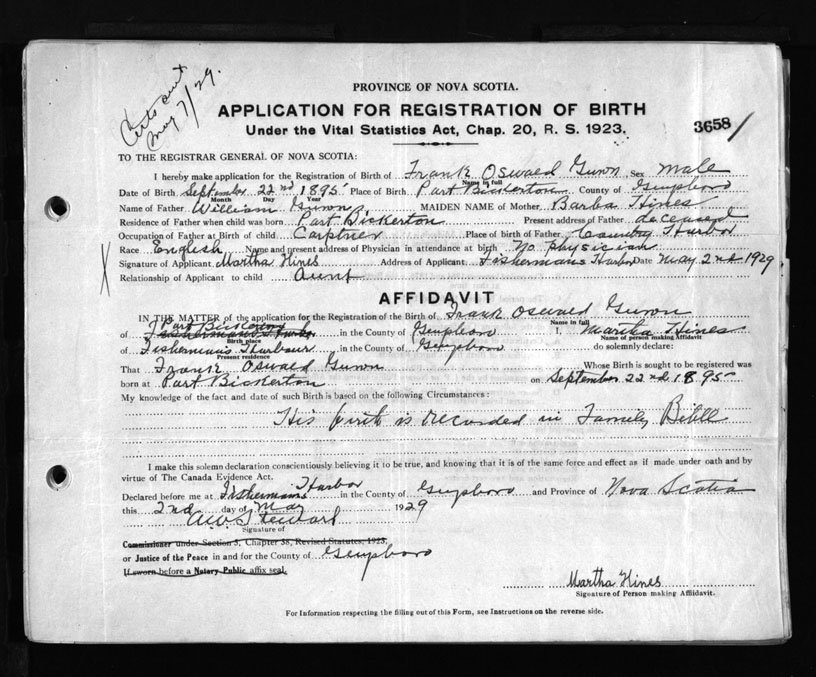 Certs sent
May 7/29.
PROVINCE OF NOVA SCOTIA.
APPLICATION FOR REGISTRATION OF BIRTH
3658
Under the Vital Statistics Act, Chap. 20, R. S. 1923.
TO THE REGISTRAR GENERAL OF NOVA SCOTIA:
I hereby make application for the Registration of Birth of Frank Oswald Gunn Sex Male
Name in full
Date of Birth September 22nd 1895 Place of Birth Port Bickerton County of Guysboro
Month Day Year
Name of Father William Gunn MAIDEN NAME of Mother Barba Hines
Residence of Father when child was born Port Bickerton Present address of Father deceased
Occupation of Father at Birth of child Carptner Place of birth of Father Country Harbor
Race English Name and present address of Physician in attendance at birth No physician
Signature of Applicant Martha Hines Address of Applicant Fishermans Harbor Date May 2nd 1929
X
Relationship of Applicant to child Aunt
AFFIDAVIT
IN THE MATTER of the application for the Registration of Birth of Frank Oswald Gunn
Name in full
Port Bickerton
of in the County of Guysboro I, Martha Hines
Birth place Name of person making Affidavit
of Fishermans Harbour in the County of Guysboro do solemnly declare:
Present residence
That Frank Oswald Gunn Whose Birth is sought to be registered was
born at Port Bickerton on September 22nd 1895
My knowledge of the fact and date of such Birth is based on the following Circumstances:
His birth is recorded in Family Bible
I make this solemn declaration conscientiously believing it to be true, and knowing that it is of the same force and effect as if made under oath and by
virtue of The Canada Evidence Act.
Declared before me at Fishermans Harbor in the County of Guysboro and Province of Nova Scotia
this 2nd day of May 1929
Stewart
Signature of
Commissioner under Section 3, Chapter 38, Revised Statutes, 1923,
or Justice of the Peace in and for the County of Guysboro
If sworn before a Notary Public affix seal.
Martha Hines
Signature of Person making Affidavit.
For Information respecting the filling out of this Form, see Instructions on the reverse side.